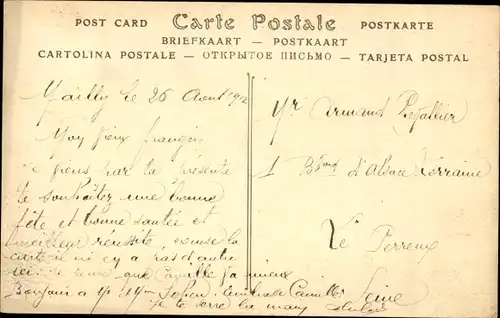 POST CARD Carte Postale POSTKARTE
BRIEFKAART — POSTKAART
CARTOLINA POSTALE — ОТКРЫТОЕ ПИСЬМО — TARJETA POSTAL
Mailly le 26
Mon vieux français
je viens par la présente
te souhaitez une bonne
fête et bonne santée et
meilleur réussite, excuse la
carte il ni en y a pas d'autre
ici je que Camille va mieux
Bonjour a Mr Mme Camille
je te serre la main Jules
Mr Armand
1 Bvard d'Alsace Lorraine
Le Perreux
Seine